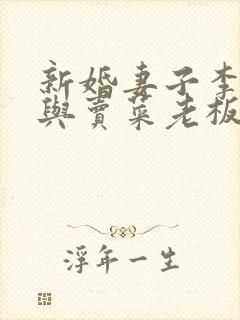 新婚妻子李
與賣菜老板
浮年一生